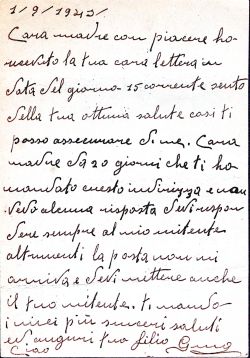 1/9/1942
Cara madre con piacere ho
ricevuto la tua cara lettera in
data del giorno 15 corrente sento
della tua ottima salute così ti
posso assecurare di me. Cara
madre da 20 giorni che ti ho
mandato questo indirizza e non
vedo alcuna risposta devi rispon
dere sempre al mio mitente
altrimenti la posta non mi
arriva e devi mettere anche
il tuo mitente. ti mando
i miei più sinceri saluti
ed auguri tuo filio
Ciao